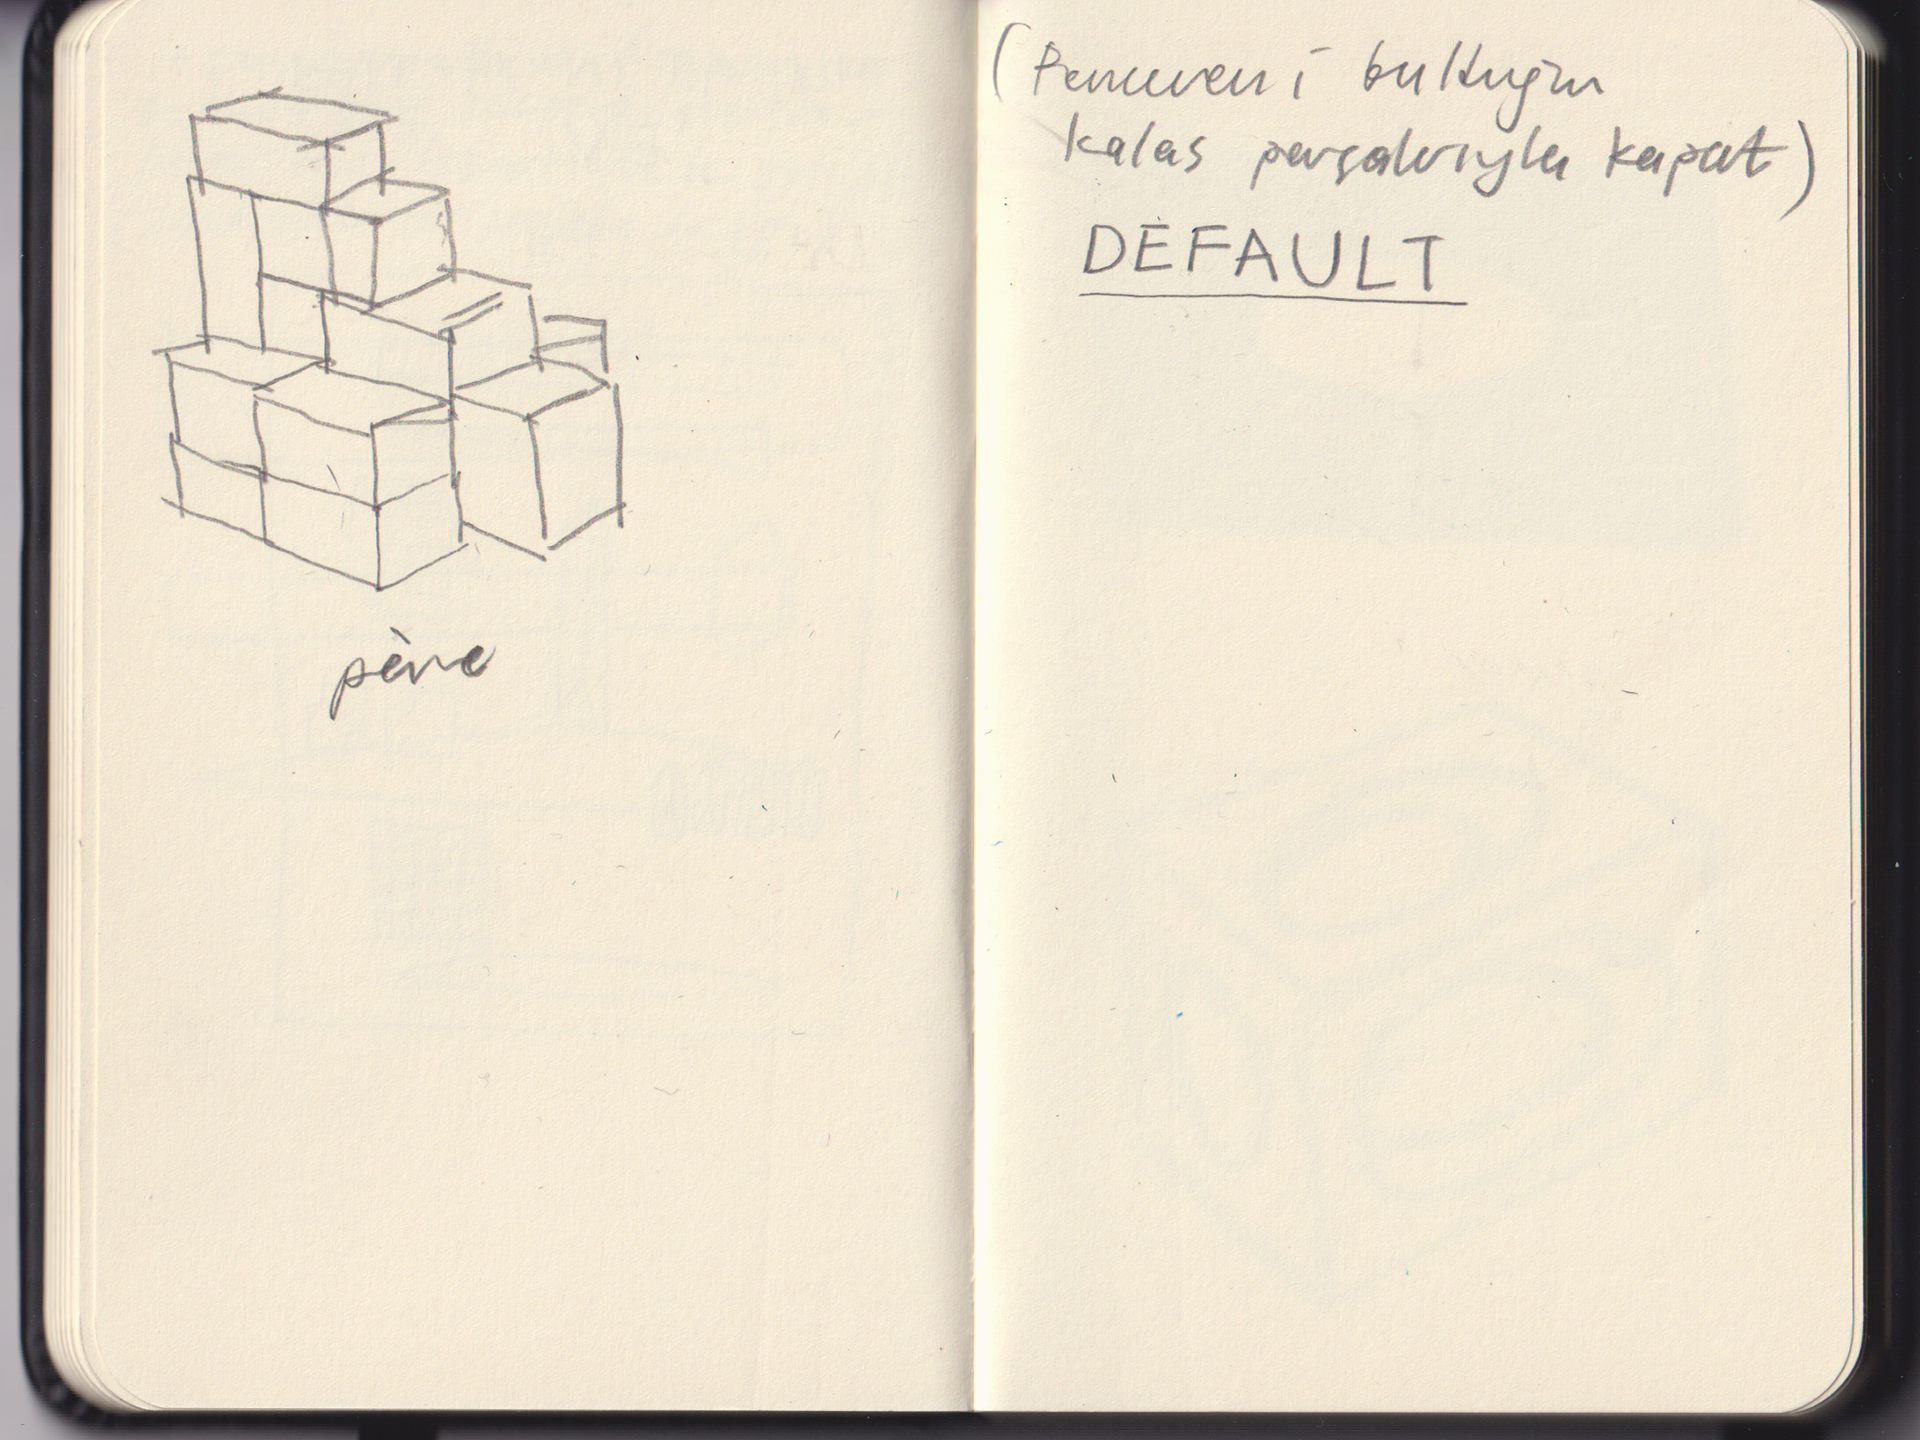 père
(Pencereni bulduğun
kalas parçalarıyla kapat)
DEFAULT